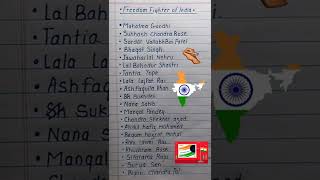 • Freedom Fighter of India •
• Mahatma Gandhi
• Subhash Chandra Bose
• Sardar Vallabh Bai Patel
• Bhagat Singh
• Jawaharlal Nehru
• Lal Bahadur Shastri
• Tantia Tope
• Lala Lajpat Rai
• Ashfaqulla Khan
• Sukhdev
• Nana Sahib
• Mangal Pandey
• Chandra Shekhar azad
• Abdul hafiz mohamed
• Begum hazrat mahal
• Rani Laxmi Bai
• Khudiram Bose
• Sitarama Raju
• Surya Sen
• Bipin Chandra Pal
Lal Bah
Tantia
Lala La
Ashfaq
Suk
Nana S
Mangal